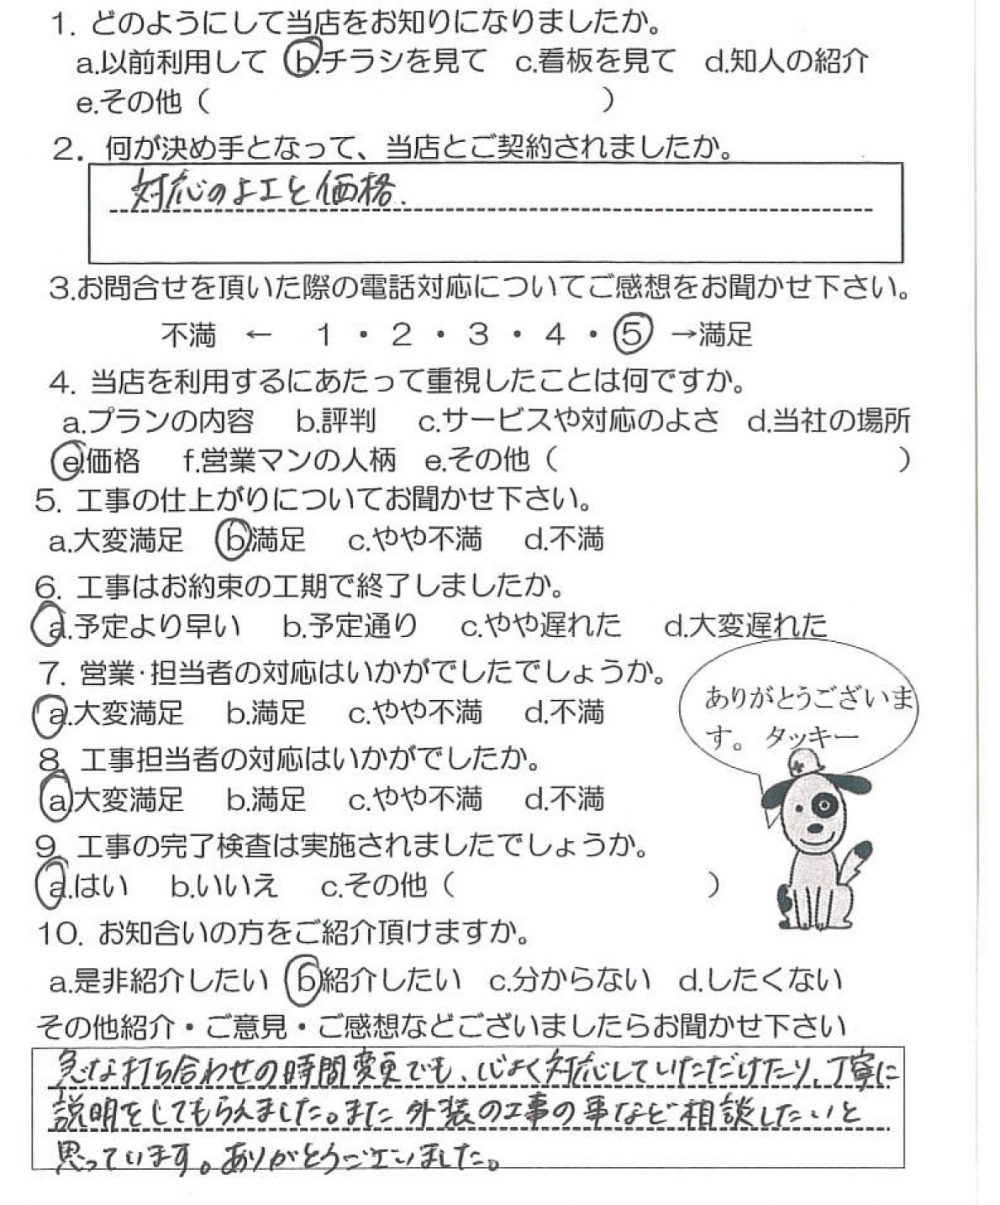 1. どのようにして当店をお知りになりましたか。
a.以前利用して b.チラシを見て c.看板を見て d.知人の紹介
e.その他（ ）
2．何が決め手となって、当店とご契約されましたか。
対応のよさと価格.
3.お問合せを頂いた際の電話対応についてご感想をお聞かせ下さい。
不満 ← 1・2・3・4・5 →満足
4. 当店を利用するにあたって重視したことは何ですか。
a.プランの内容 b.評判 c.サービスや対応のよさ d.当社の場所
e.価格 f.営業マンの人柄 e.その他（ ）
5. 工事の仕上がりについてお聞かせ下さい。
a.大変満足 b.満足 c.やや不満 d.不満
6. 工事はお約束の工期で終了しましたか。
a.予定より早い b.予定通り c.やや遅れた d.大変遅れた
7. 営業・担当者の対応はいかがでしたでしょうか。
a.大変満足 b.満足 c.やや不満 d.不満
ありがとうございま
す。 タッキー
8. 工事担当者の対応はいかがでしたか。
a.大変満足 b.満足 c.やや不満 d.不満
9. 工事の完了検査は実施されましたでしょうか。
a.はい b.いいえ c.その他（ ）
10. お知合いの方をご紹介頂けますか。
a.是非紹介したい b.紹介したい c.分からない d.したくない
その他紹介・ご意見・ご感想などございましたらお聞かせ下さい
急な打ち合わせの時間変更でも、心よく対応していただけたり、丁寧に
説明をしてもらえました。また外装の工事の事など相談したいと
思っています。ありがとうございました。